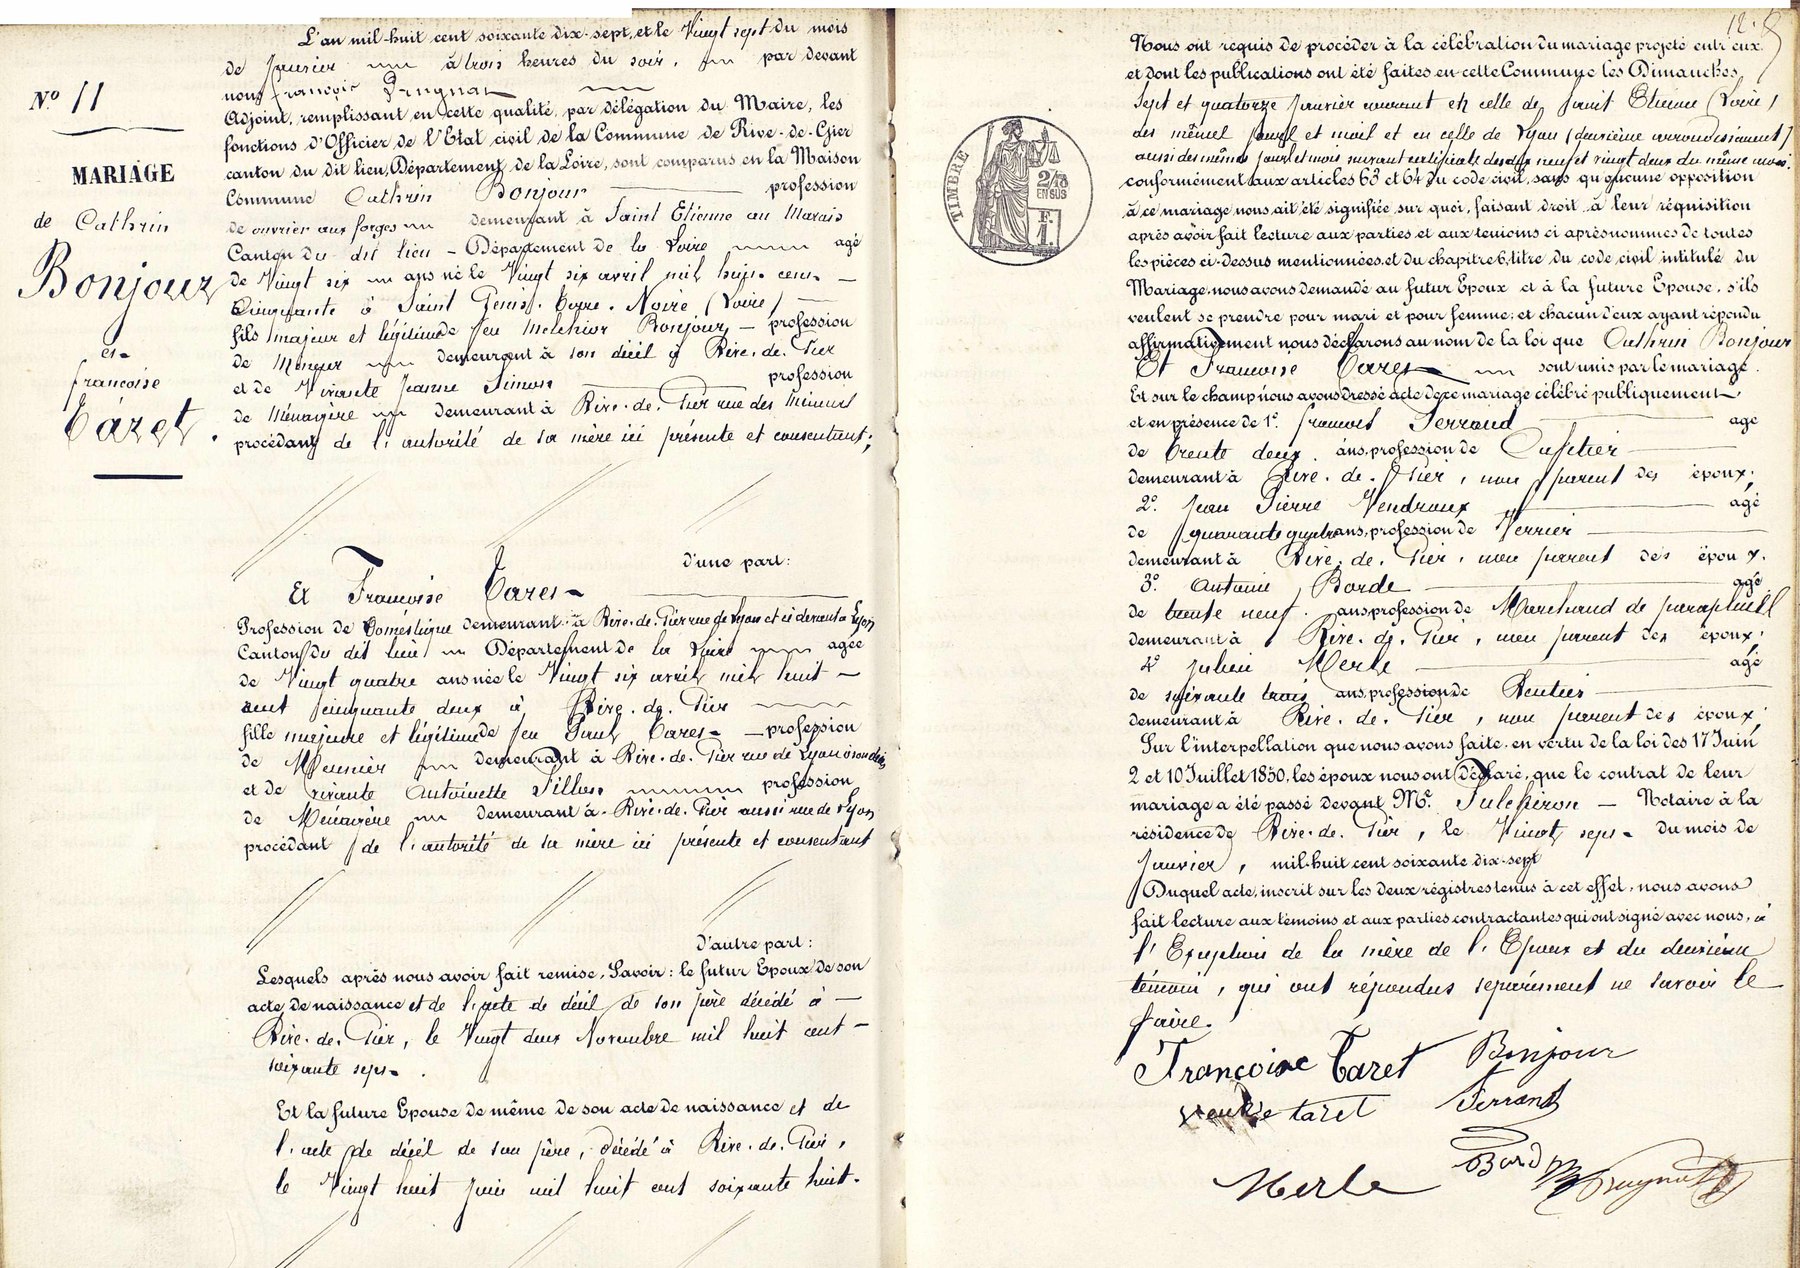 L'an mil-huit cent soixante dix-sept, et le Vingt sept du mois
de Janvier à trois heures du soir, par devant
nous François Prugnat
Adjoint, remplissant en cette qualité, par délégation du Maire, les
fonctions d'Officier de l'Etat civil de la Commune de Rive-de-Gier
canton du dit lieu, Département de la Loire, sont comparus en la Maison
Commune Cathrin Bonjour profession
de ouvrier aux forges demeurant à Saint Etienne au Marais
Canton du dit lieu - Département de la Loire agé
de Vingt six ans né le Vingt six avril mil huit cent
Cinquante à Saint Genis-Terre-Noire (Loire)
fils majeur et légitime de feu Melchior Bonjour - profession
de Mineur demeurant à son décès à Rive-de-Gier
et de Vivante Jeanne Simon profession
de Ménagère demeurant à Rive-de-Gier rue des Mineurs
procédant de l'autorité de sa mère ici présente et consentant;
d'une part:
Nº 11
MARIAGE
de Cathrin
Bonjour
et
françoise
Taret.
Et Francoise Taret
Profession de Domestique demeurant à Rive-de-Gier rue de Lyon et ci devant à Lyon
Canton du dit lieu Département de la Loire agée
de Vingt quatre ans née le Vingt six avril mil huit
cent cinquante deux à Rive-de-Gier
fille majeure et légitime de feu Paul Taret - profession
de Meunier demeurant à Rive-de-Gier rue de Lyon à son décès
et de vivante Antoinette profession
de Ménagère demeurant à Rive-de-Gier aussi rue de Lyon
procédant de l'autorité de sa mère ici présente et consentant
d'autre part:
Lesquels après nous avoir fait remise, Savoir: le futur Epoux de son
acte de naissance et de l'acte de décès de son père décédé à
Rive-de-Gier, le Vingt deux Novembre mil huit cent
soixante sept.
Et la future Epouse de même de son acte de naissance et de
l'acte de décès de son père, décédé à Rive-de-Gier,
le Vingt huit Juin mil huit cent soixante huit.
12.
Nous ont requis de procéder à la célébration du mariage projeté entr'eux.
et dont les publications ont été faites en cette Commune les Dimanches
Sept et quatorze Janvier courant en celle de Saint Etienne (Loire)
des mêmes jours et mois et en celle de Lyon (deuxième arrondissement)
aussi des mêmes jours et mois suivant certificats des dix neuf et vingt deux du même mois.
conformément aux articles 63 et 64 du code civil, sans qu'aucune opposition
à ce mariage nous ait été signifiée sur quoi, faisant droit à leur réquisition
après avoir fait lecture aux parties et aux temoins ci après nommés de toutes
les pièces ci-dessus mentionnées et du chapitre 6, titre du code civil intitulé du
Mariage, nous avons demandé au futur Epoux et à la future Epouse, s'ils
veulent se prendre pour mari et pour femme; et chacun d'eux ayant répondu
affirmativement nous déclarons au nom de la loi que Cathrin Bonjour
Et Francoise Taret sont unis par le mariage.
Et sur le champ nous avons dressé acte de ce mariage célébré publiquement
et en présence de 1º. françois Ferrand agé
de trente deux ans, profession de
demeurant à Rive-de-Gier, non parent des époux;
2º. Jean Pierre Vendroux agé
de quarante quatre ans, profession de Verrier
demeurant à Rive-de-Gier, non parent des époux.
3º. Antoine Borde agé
de trente neuf ans, profession de Marchand de parapluies
demeurant à Rive-de-Gier, non parent des époux;
4º Julien Merle agé
de soixante trois ans, profession de Rentier
demeurant à Rive-de-Gier, non parent des époux;
Sur l'interpellation que nous avons faite en vertu de la loi des 17 Juin
2 et 10 Juillet 1850, les époux nous ont déclaré, que le contrat de leur
mariage a été passé devant Mᵉ. Notaire à la
résidence de Rive-de-Gier, le Vingt sept du mois de
Janvier, mil-huit cent soixante dix-sept
Duquel acte, inscrit sur les deux régistres tenus à cet effet, nous avons
fait lecture aux témoins et aux parties contractantes qui ont signé avec nous, à
l'Exception de la mère de l'Epoux et du deuxième
témoin, qui ont répondus séparément ne savoir le
faire.
TIMBRE
2/10
EN SUS
F.
1.
Francoise Taret Bonjour
veuve taret Ferrand
Merle Bord Prugnat